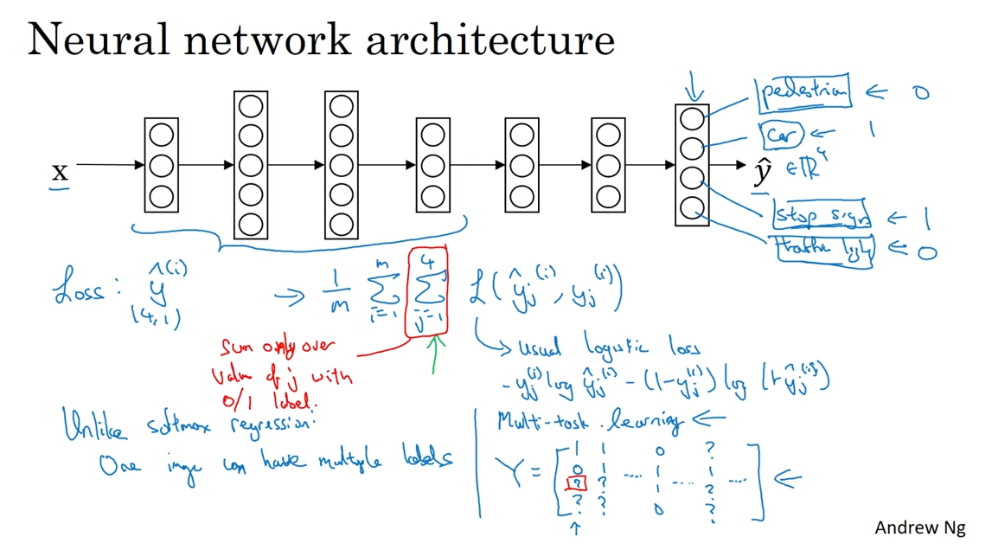 Neural network architecture
x
ŷ ∈ ℝ⁴
pedestrian ← 0
car ← 1
stop sign ← 1
traffic light ← 0
Loss: ŷ^(i) → 1/m Σ_{i=1}^{m} Σ_{j=1}^{4} L(ŷ_j^(i), y_j^(i))
(4,1)
sum only over
value of j with
0/1 label.
usual logistic loss
-y_j^(i) log ŷ_j^(i) - (1-y_j^(i)) log (1-ŷ_j^(i))
Unlike softmax regression:
One image can have multiple labels
Multi-task learning ←
Y = [
1 1 0 ?
0 1 .... 1 .... 1 ....
? ? 1 ?
? ? 0 ?
] ←
Andrew Ng